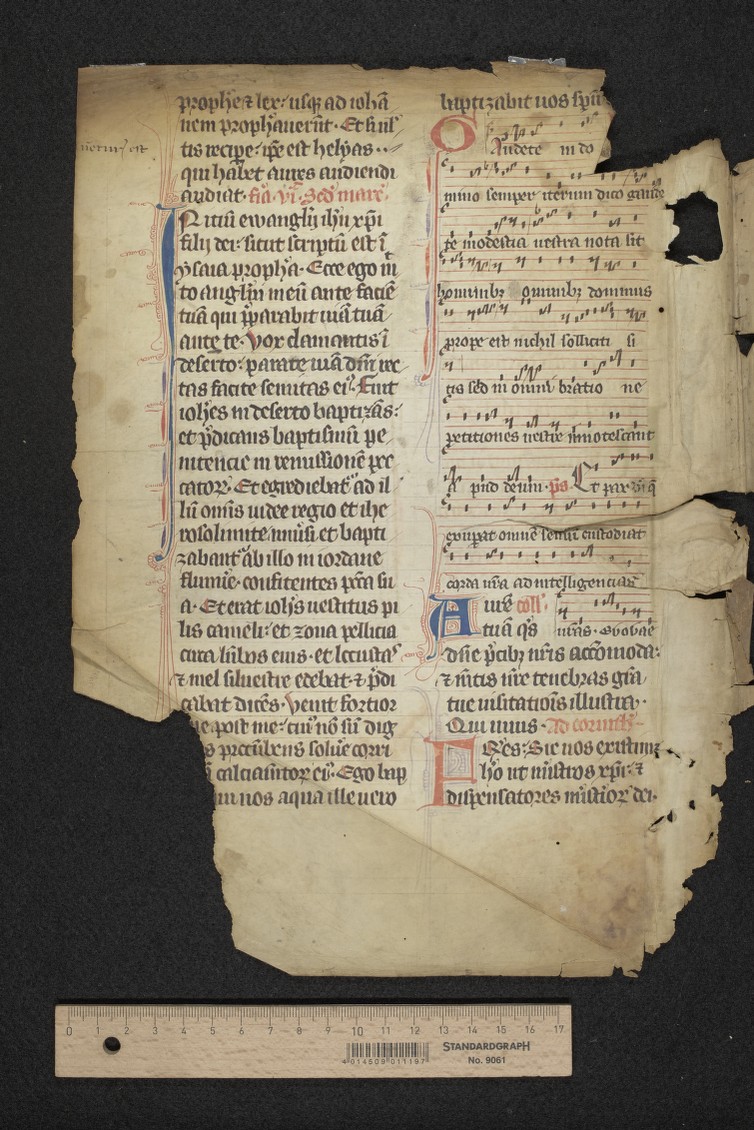 prophe ⁊ lex: usq; ad iohā
nem prophauerūt. Et si uul
tis recipe: ipe est helyas
qui habet aures audiendi
audiat. fia. vi. Sed marc.
INitiū ewanglii ihu xpi
filii dei: sicut scriptū est ī
ysaia propha. Ecce ego mi
to anglm meū ante faciē
tuā qui pparabit uiā tuā
ante te. Vox clamantis ī
deserto: parate uiā dni rec
tas facite semitas ei. Fuit
iohes in deserto baptizās:
et pdicans baptismū pe
nitencie in remissionē pec
cator. Et egrediebat ad il
lū omīs iudee regio et ihe
rosolimite uniusi et bapti
zabant ab illo in iordane
flumīe. confitentes pcca su
a. Et erat iohs uestitus pi
lis cameli: et zona pellicia
circa lūbos eius. et locustas
⁊ mel siluestre edebat. ⁊ pdi
cabat dicēs. Venit fortior
me post me: cui nō sū dig
s procūbens soluere corri
calciamtor ei. Ego bap
uos aqua ille uero
baptizabit uos spū
Gaudete in do
mino semper iterum dico gaude
te modestia uestra nota sit
hominibz omnibz dominus
prope est nichil solliciti si
tis sed in omni oratio ne
petitiones uestre innotescant
apud deum. ps. Et pax
exupat omnē sensū custodiat
corda ura ad intelligencias
Aurē coll.
tuā qs uras. Evovae
dne pcibz nris accōmoda:
⁊ mtis nre tenebras gra
tue uisitationis illustra.
Qui uiuis. Ad corinth.
FRes: Sic nos existimet
ho ut mistros xpi: ⁊
dispensatores mistior dei.